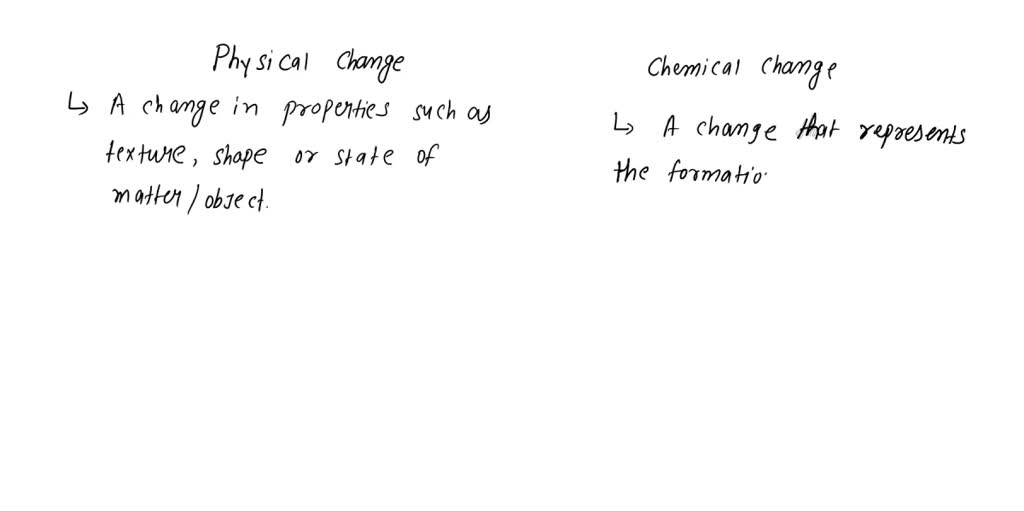 Physical Change
↳ A change in properties such as
texture, shape or state of
matter/object.
Chemical Change
↳ A change that represents
the formatio